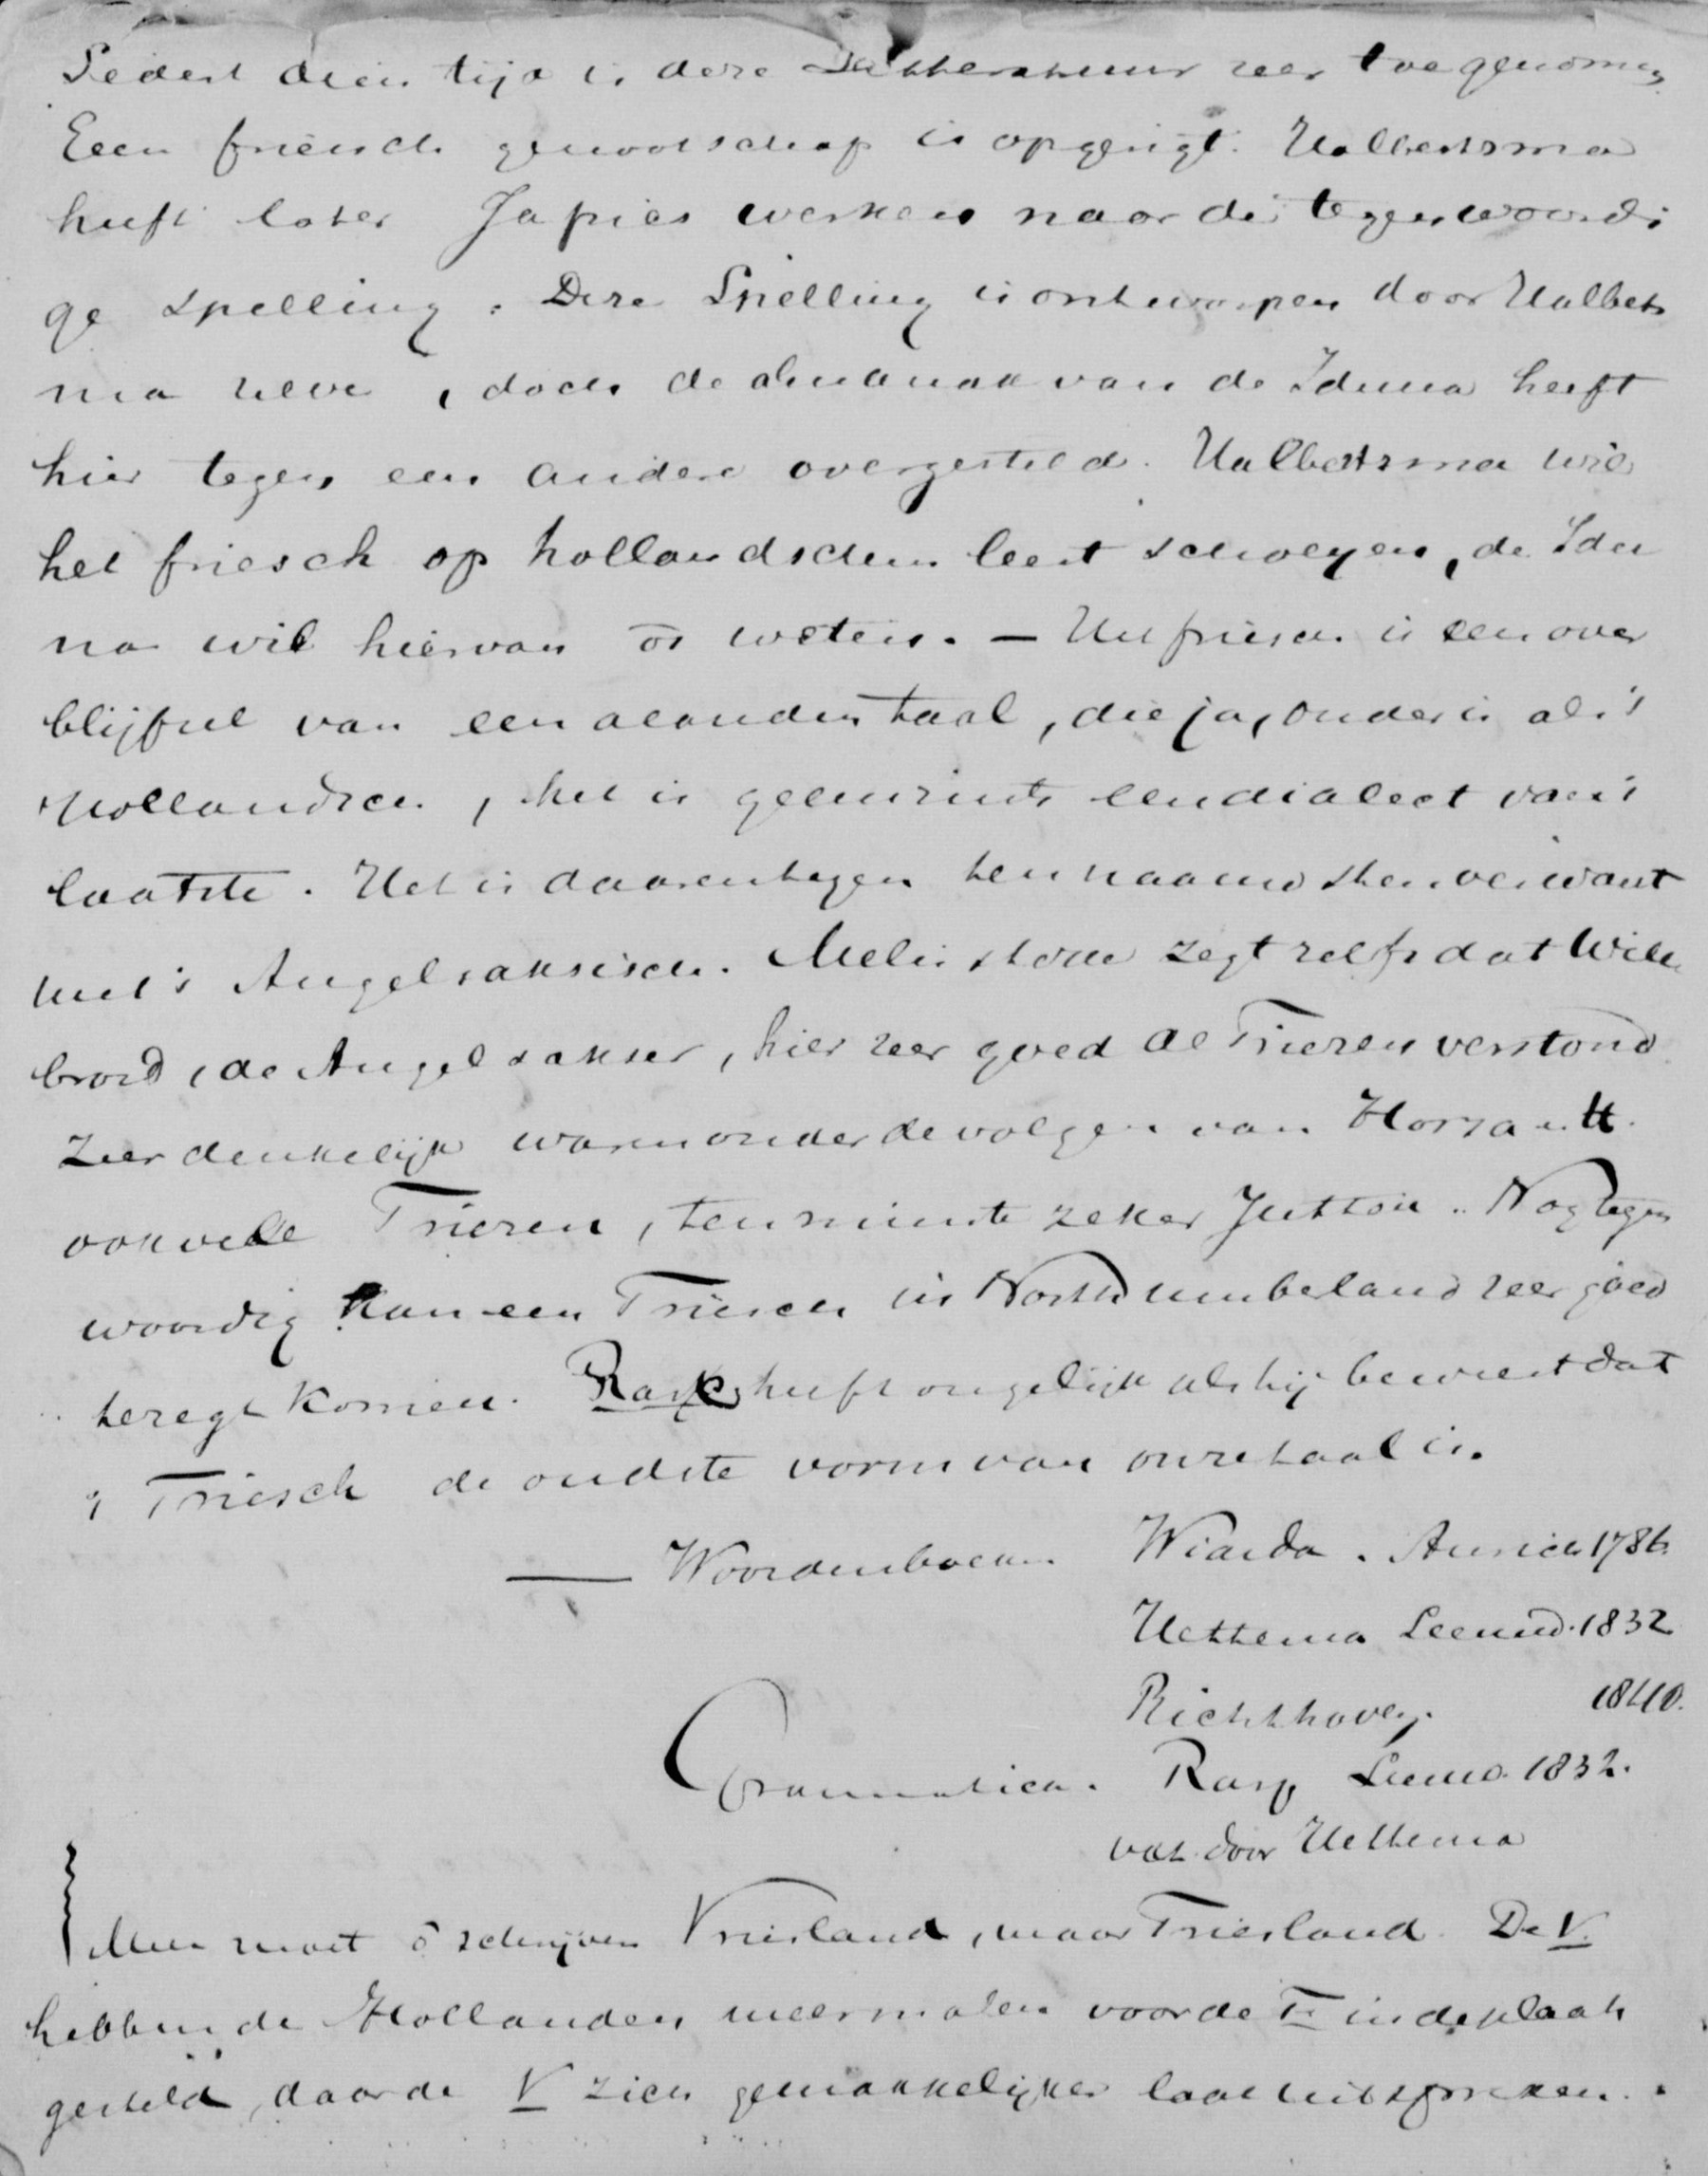 Sedert dien tijd is deze Litteratuur zeer toegenomen
Een friesch genootschap is opgerigt. Halbertsma
heeft later Japiks werken naar de tegenwoordi
ge spelling. Deze Spelling is ontworpen door Halberts
ma zelve, doch de almanak van de Iduna heeft
hier tegen een andere overgesteld. Halbertsma wil
het friesch op hollandschen leest schoeyen, de Idu
na wil hiervan ō weten. — Het friesch is een over
blijfsel van een taal, die ja, ouder is als 't
Hollandsch, het is geenszints een dialect van 't
laatste. Het is daarentegen ten naauwsten verwant
met 't Angelsaksisch. Melis stoke zegt zelfs dat Wille
brord, de Angelsakser, hier zeer goed de Friezen verstond
Zeer denkelijk waren onder de volgen van Horsa en H.
ook vele Friezen, tenminste zeker Jutten. Nog tegen
woordig kan een Friesch in Northumberland zeer goed
teregt komen. Rask heeft ongelijk als hij beweert dat
't Friesch de oudste vorm van onze taal is.
— Woordenboeken Wiarda. Aurich 1786.
Hettema Leeuw. 1832
Richthoven. 1840.
Grammatica. Rask Leeuw. 1832.
vert. door Hettema
Men moet ō schrijven Vriesland, maar Friesland. De V.
hebben de Hollanders meermalen voor de F in de plaats
gesteld, daar de V zich gemakkelijker laat uitspreken.